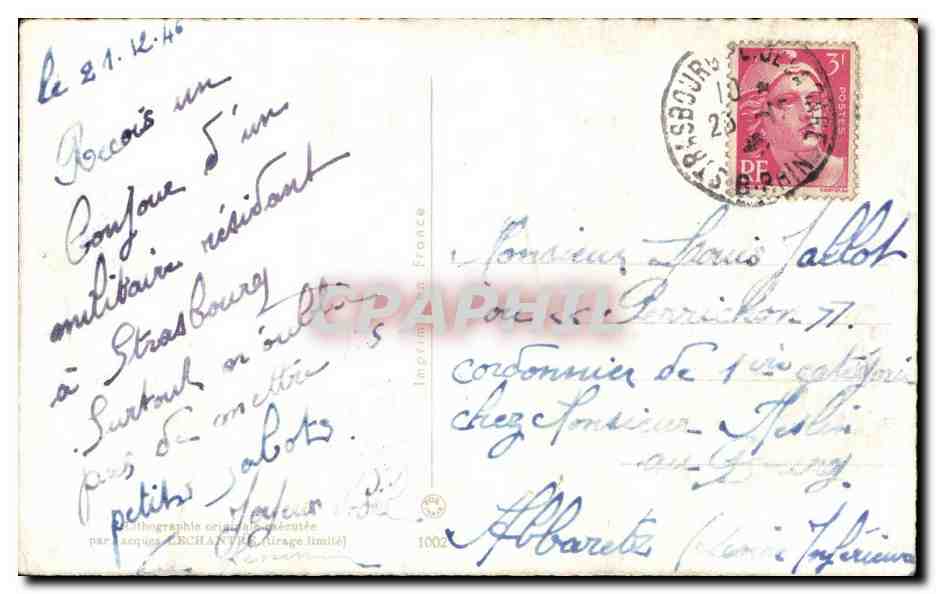 le 21.12.46
Recois un
bonjour d'un
militaire résidant
à Strasbourg
Surtout n'oublie
pas de mettre tes
petits sabots
Joyeux Noël
Lithographie originale exécutée
par Jacques LECHANTRE (tirage limité)
1002
Imprimé en France
CPAPHIL
STRASBOURG
10
B. RHIN
3F
POSTES
RF
Monsieur Louis Jallot
ou Perrichon 77.
cordonnier de 1ère catégorie
chez Monsieur Meslin
au Bourg
Abbaretz (Loire Inférieure